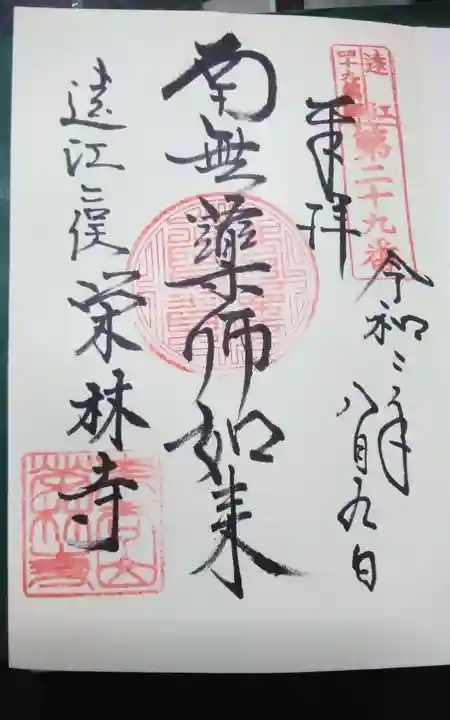 遠江
四十九薬師
第二十九番
奉拝
令和二年八月九日
南無薬師如来
遠江二俣 栄林寺